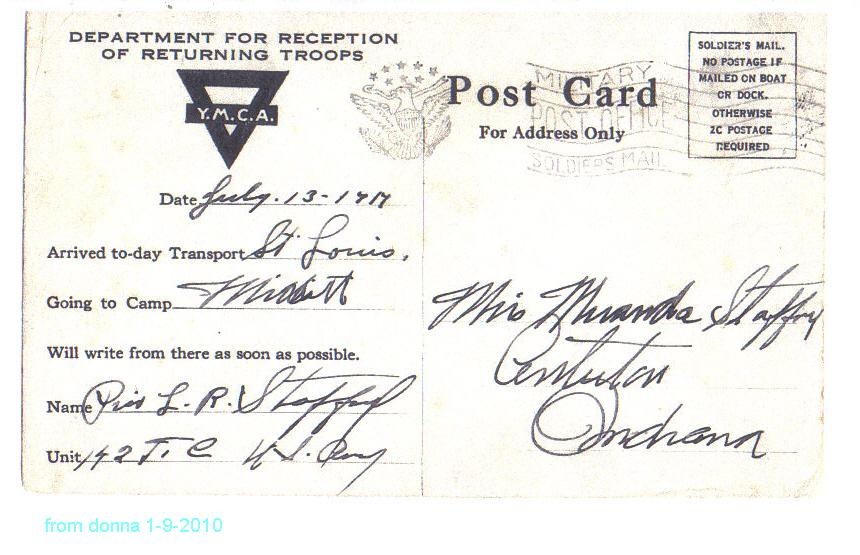 DEPARTMENT FOR RECEPTION
OF RETURNING TROOPS
Y.M.C.A.
Date July. 13 - 19
Arrived to-day Transport St Louis.
Going to Camp
Will write from there as soon as possible.
Name L. R.
Unit
Post Card
For Address Only
MILITARY
POST OFFICE
SOLDIERS MAIL
SOLDIER'S MAIL.
NO POSTAGE IF
MAILED ON BOAT
OR DOCK.
OTHERWISE
2C POSTAGE
REQUIRED
Miranda
Centerton
Indiana
from donna 1-9-2010